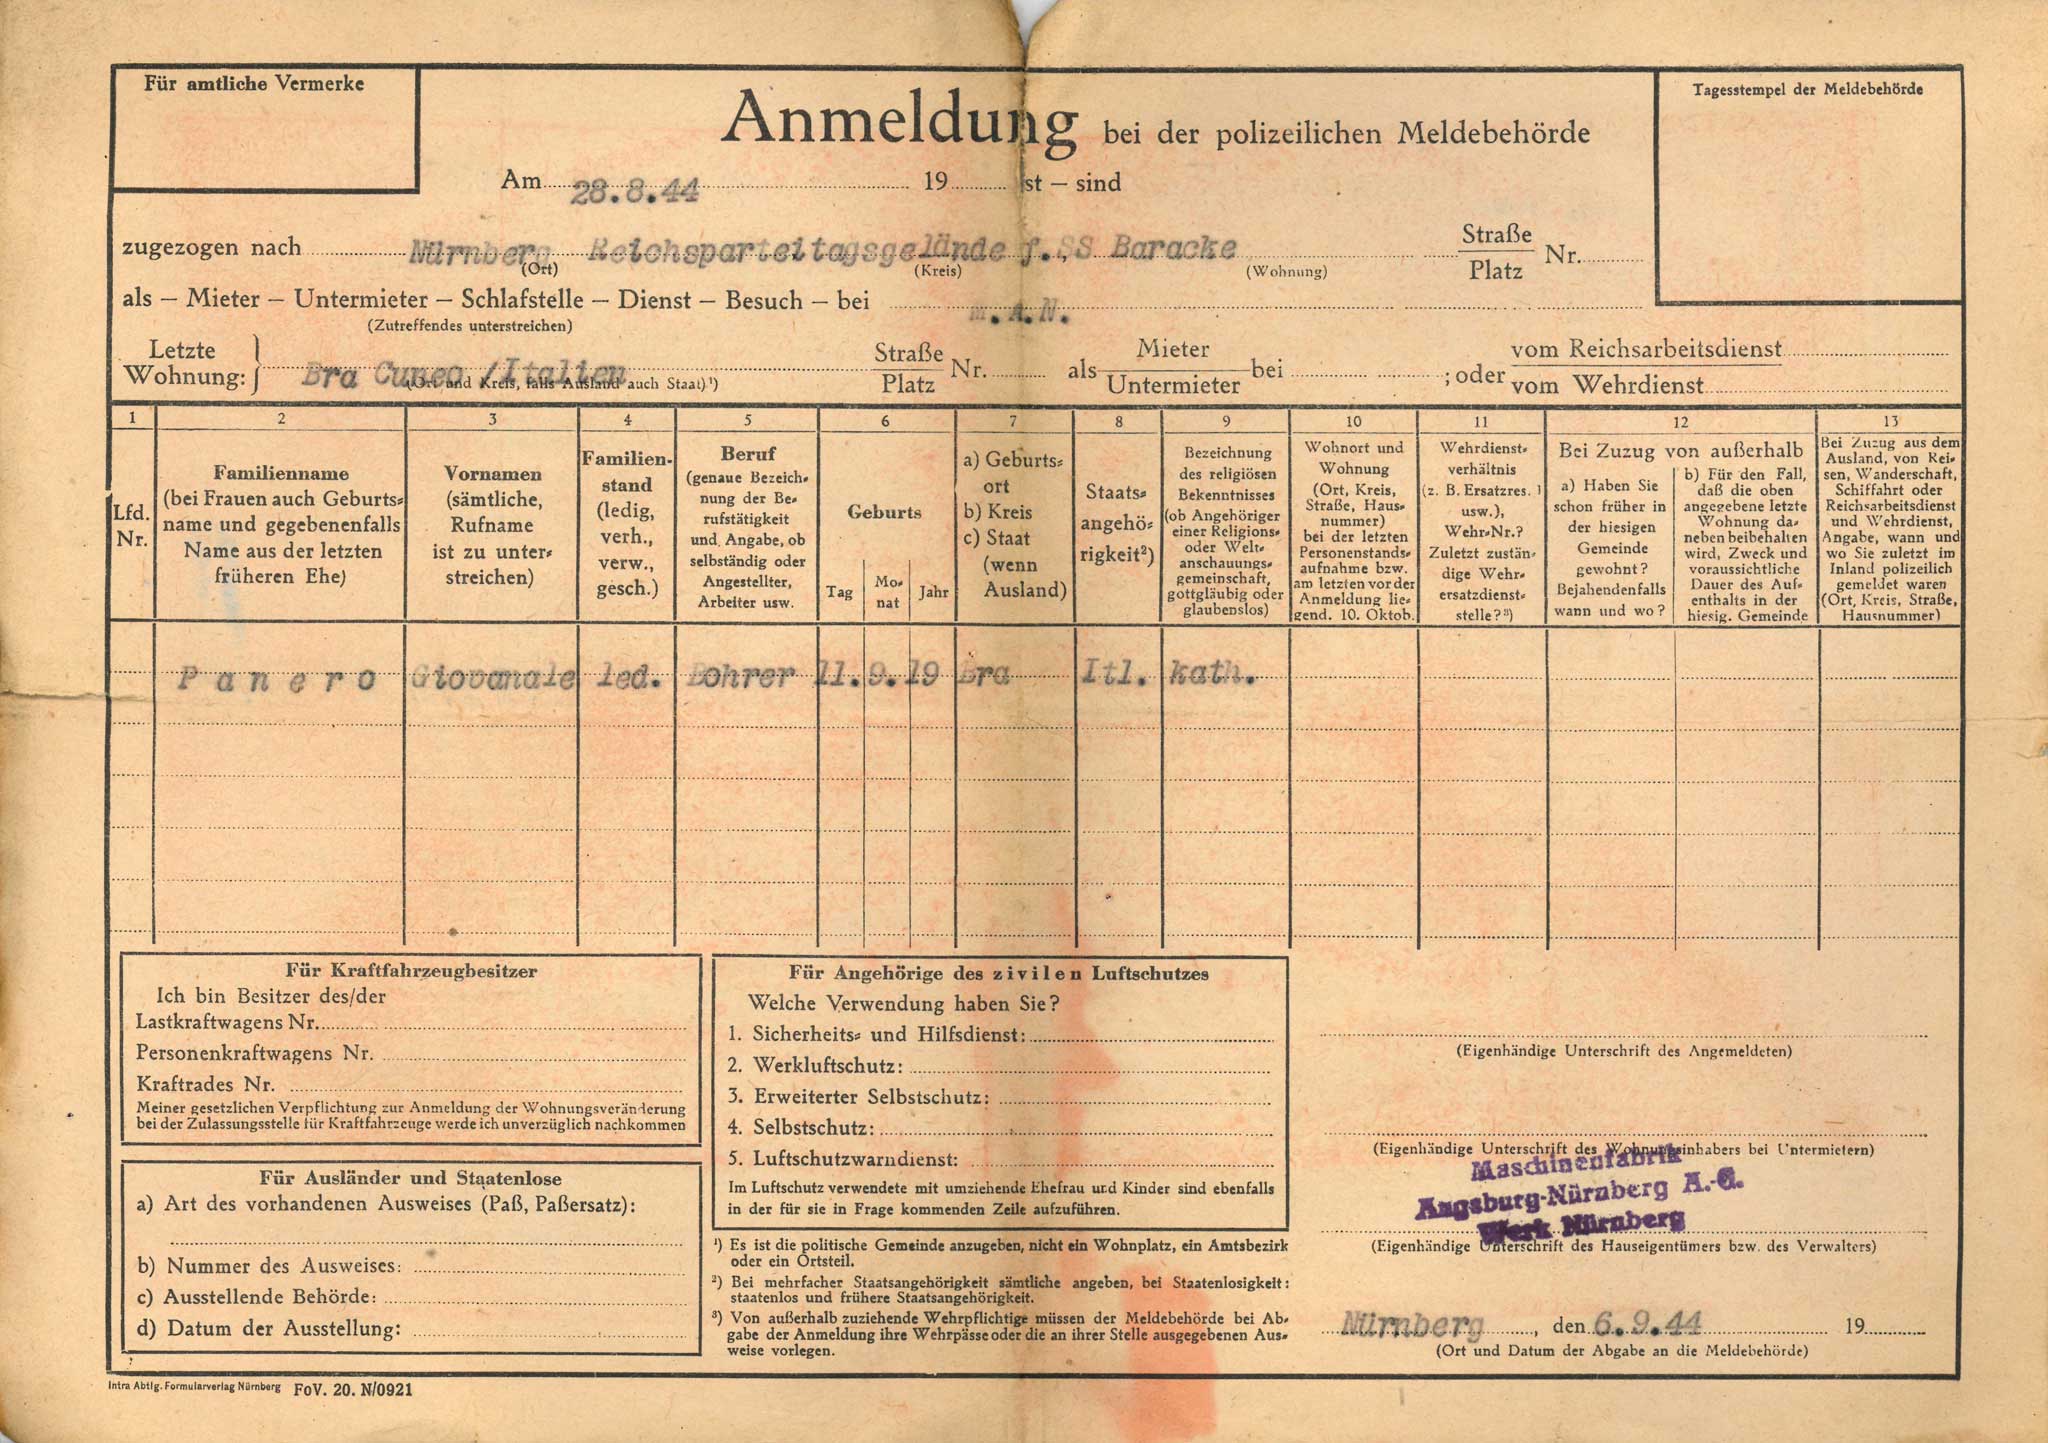 Für amtliche Vermerke
Tagesstempel der Meldebehörde
Anmeldung bei der polizeilichen Meldebehörde
Am 28.8.44 19 ist – sind
zugezogen nach Nürnberg Reichsparteitagsgelände f. SS Baracke Straße Platz Nr.
(Ort) (Kreis) (Wohnung)
als – Mieter – Untermieter – Schlafstelle – Dienst – Besuch – bei M.A.N.
(Zutreffendes unterstreichen)
Letzte Wohnung: Bra Cuneo /Italien Straße Platz Nr. als Mieter Untermieter bei ; oder vom Reichsarbeitsdienst vom Wehrdienst
(Ort und Kreis, falls Ausland auch Staat) ¹)
1 2 3 4 5 6 7 8 9 10 11 12 13
Lfd.
Nr.
Familienname
(bei Frauen auch Geburts-
name und gegebenenfalls
Name aus der letzten
früheren Ehe)
Vornamen
(sämtliche,
Rufname
ist zu unter-
streichen)
Familien-
stand
(ledig,
verh.,
verw.,
gesch.)
Beruf
(genaue Bezeich-
nung der Be-
rufstätigkeit
und Angabe, ob
selbständig oder
Angestellter,
Arbeiter usw.
Geburts
Tag
Mo-
nat
Jahr
a) Geburts-
ort
b) Kreis
c) Staat
(wenn
Ausland)
Staats-
angehö-
rigkeit²)
Bezeichnung
des religiösen
Bekenntnisses
(ob Angehöriger
einer Religions-
oder Welt-
anschauungs-
gemeinschaft,
gottgläubig oder
glaubenslos)
Wohnort und
Wohnung
(Ort, Kreis,
Straße, Haus-
nummer)
bei der letzten
Personenstands-
aufnahme bzw.
am letzten vor der
Anmeldung lie-
gend. 10. Oktob.
Wehrdienst-
verhältnis
(z. B. Ersatzres. I
usw.),
Wehr-Nr.?
Zuletzt zustän-
dige Wehr-
ersatzdienst-
stelle?³)
Bei Zuzug von außerhalb
a) Haben Sie
schon früher in
der hiesigen
Gemeinde
gewohnt?
Bejahendenfalls
wann und wo?
b) Für den Fall,
daß die oben
angegebene letzte
Wohnung da-
neben beibehalten
wird, Zweck und
voraussichtliche
Dauer des Auf-
enthalts in der
hiesig. Gemeinde
Bei Zuzug aus dem
Ausland, von Rei-
sen, Wanderschaft,
Schiffahrt oder
Reichsarbeitsdienst
und Wehrdienst,
Angabe, wann und
wo Sie zuletzt im
Inland polizeilich
gemeldet waren
(Ort, Kreis, Straße,
Hausnummer)
Panero Giovanale led. Bohrer 11.9.19 Bra Itl. kath.
Für Kraftfahrzeugbesitzer
Ich bin Besitzer des/der
Lastkraftwagens Nr.
Personenkraftwagens Nr.
Kraftrades Nr.
Meiner gesetzlichen Verpflichtung zur Anmeldung der Wohnungsveränderung
bei der Zulassungsstelle für Kraftfahrzeuge werde ich unverzüglich nachkommen
Für Ausländer und Staatenlose
a) Art des vorhandenen Ausweises (Paß, Paßersatz):
b) Nummer des Ausweises:
c) Ausstellende Behörde:
d) Datum der Ausstellung:
Für Angehörige des zivilen Luftschutzes
Welche Verwendung haben Sie?
1. Sicherheits- und Hilfsdienst:
2. Werkluftschutz:
3. Erweiterter Selbstschutz:
4. Selbstschutz:
5. Luftschutzwarndienst:
Im Luftschutz verwendete mit umziehende Ehefrau und Kinder sind ebenfalls
in der für sie in Frage kommenden Zeile aufzuführen.
¹) Es ist die politische Gemeinde anzugeben, nicht ein Wohnplatz, ein Amtsbezirk
oder ein Ortsteil.
²) Bei mehrfacher Staatsangehörigkeit sämtliche angeben, bei Staatenlosigkeit:
staatenlos und frühere Staatsangehörigkeit.
³) Von außerhalb zuziehende Wehrpflichtige müssen der Meldebehörde bei Ab-
gabe der Anmeldung ihre Wehrpässe oder die an ihrer Stelle ausgegebenen Aus-
weise vorlegen.
(Eigenhändige Unterschrift des Angemeldeten)
(Eigenhändige Unterschrift des Wohnungsinhabers bei Untermietern)
Maschinenfabrik
Augsburg-Nürnberg A.-G.
Werk Nürnberg
(Eigenhändige Unterschrift des Hauseigentümers bzw. des Verwalters)
Nürnberg, den 6.9.44 19
(Ort und Datum der Abgabe an die Meldebehörde)
Intra Abtlg. Formularverlag Nürnberg FoV. 20. N/0921